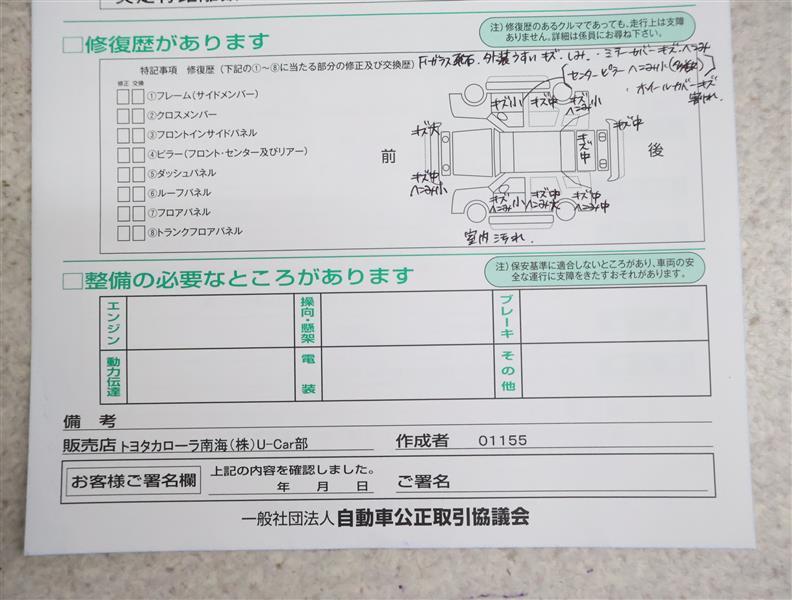 □修復歴があります
注）修復歴のあるクルマであっても、走行上は支障
ありません。詳細は係員にお尋ね下さい。
特記事項　修復歴（下記の①～⑧に当たる部分の修正及び交換歴）
Fガラス飛石．外装うすいキズ．しみ．・ミラーカバーキズ．ヘこみ
センターピラー ヘこみ小
・ホイールカバーキズ
割れ．
修正 交換
①フレーム（サイドメンバー）
②クロスメンバー
③フロントインサイドパネル
④ピラー（フロント・センター及びリアー）
⑤ダッシュパネル
⑥ルーフパネル
⑦フロアパネル
⑧トランクフロアパネル
前
後
キズ小
キズ中
キズ
ヘこみ小
キズ大
キズ中
キズ中
キズ中
ヘこみ小
キズ小
キズ中
ヘこみ大
キズ中
ヘこみ中
室内汚れ．
□整備の必要なところがあります
注）保安基準に適合しないところがあり、車両の安
全な運行に支障をきたすおそれがあります。
エンジン
操向・懸架
ブレーキ
動力伝達
電装
その他
備　考
販売店 トヨタカローラ南海（株）U-Car部
作成者　01155
お客様ご署名欄
上記の内容を確認しました。
年　月　日
ご署名
一般社団法人 自動車公正取引協議会